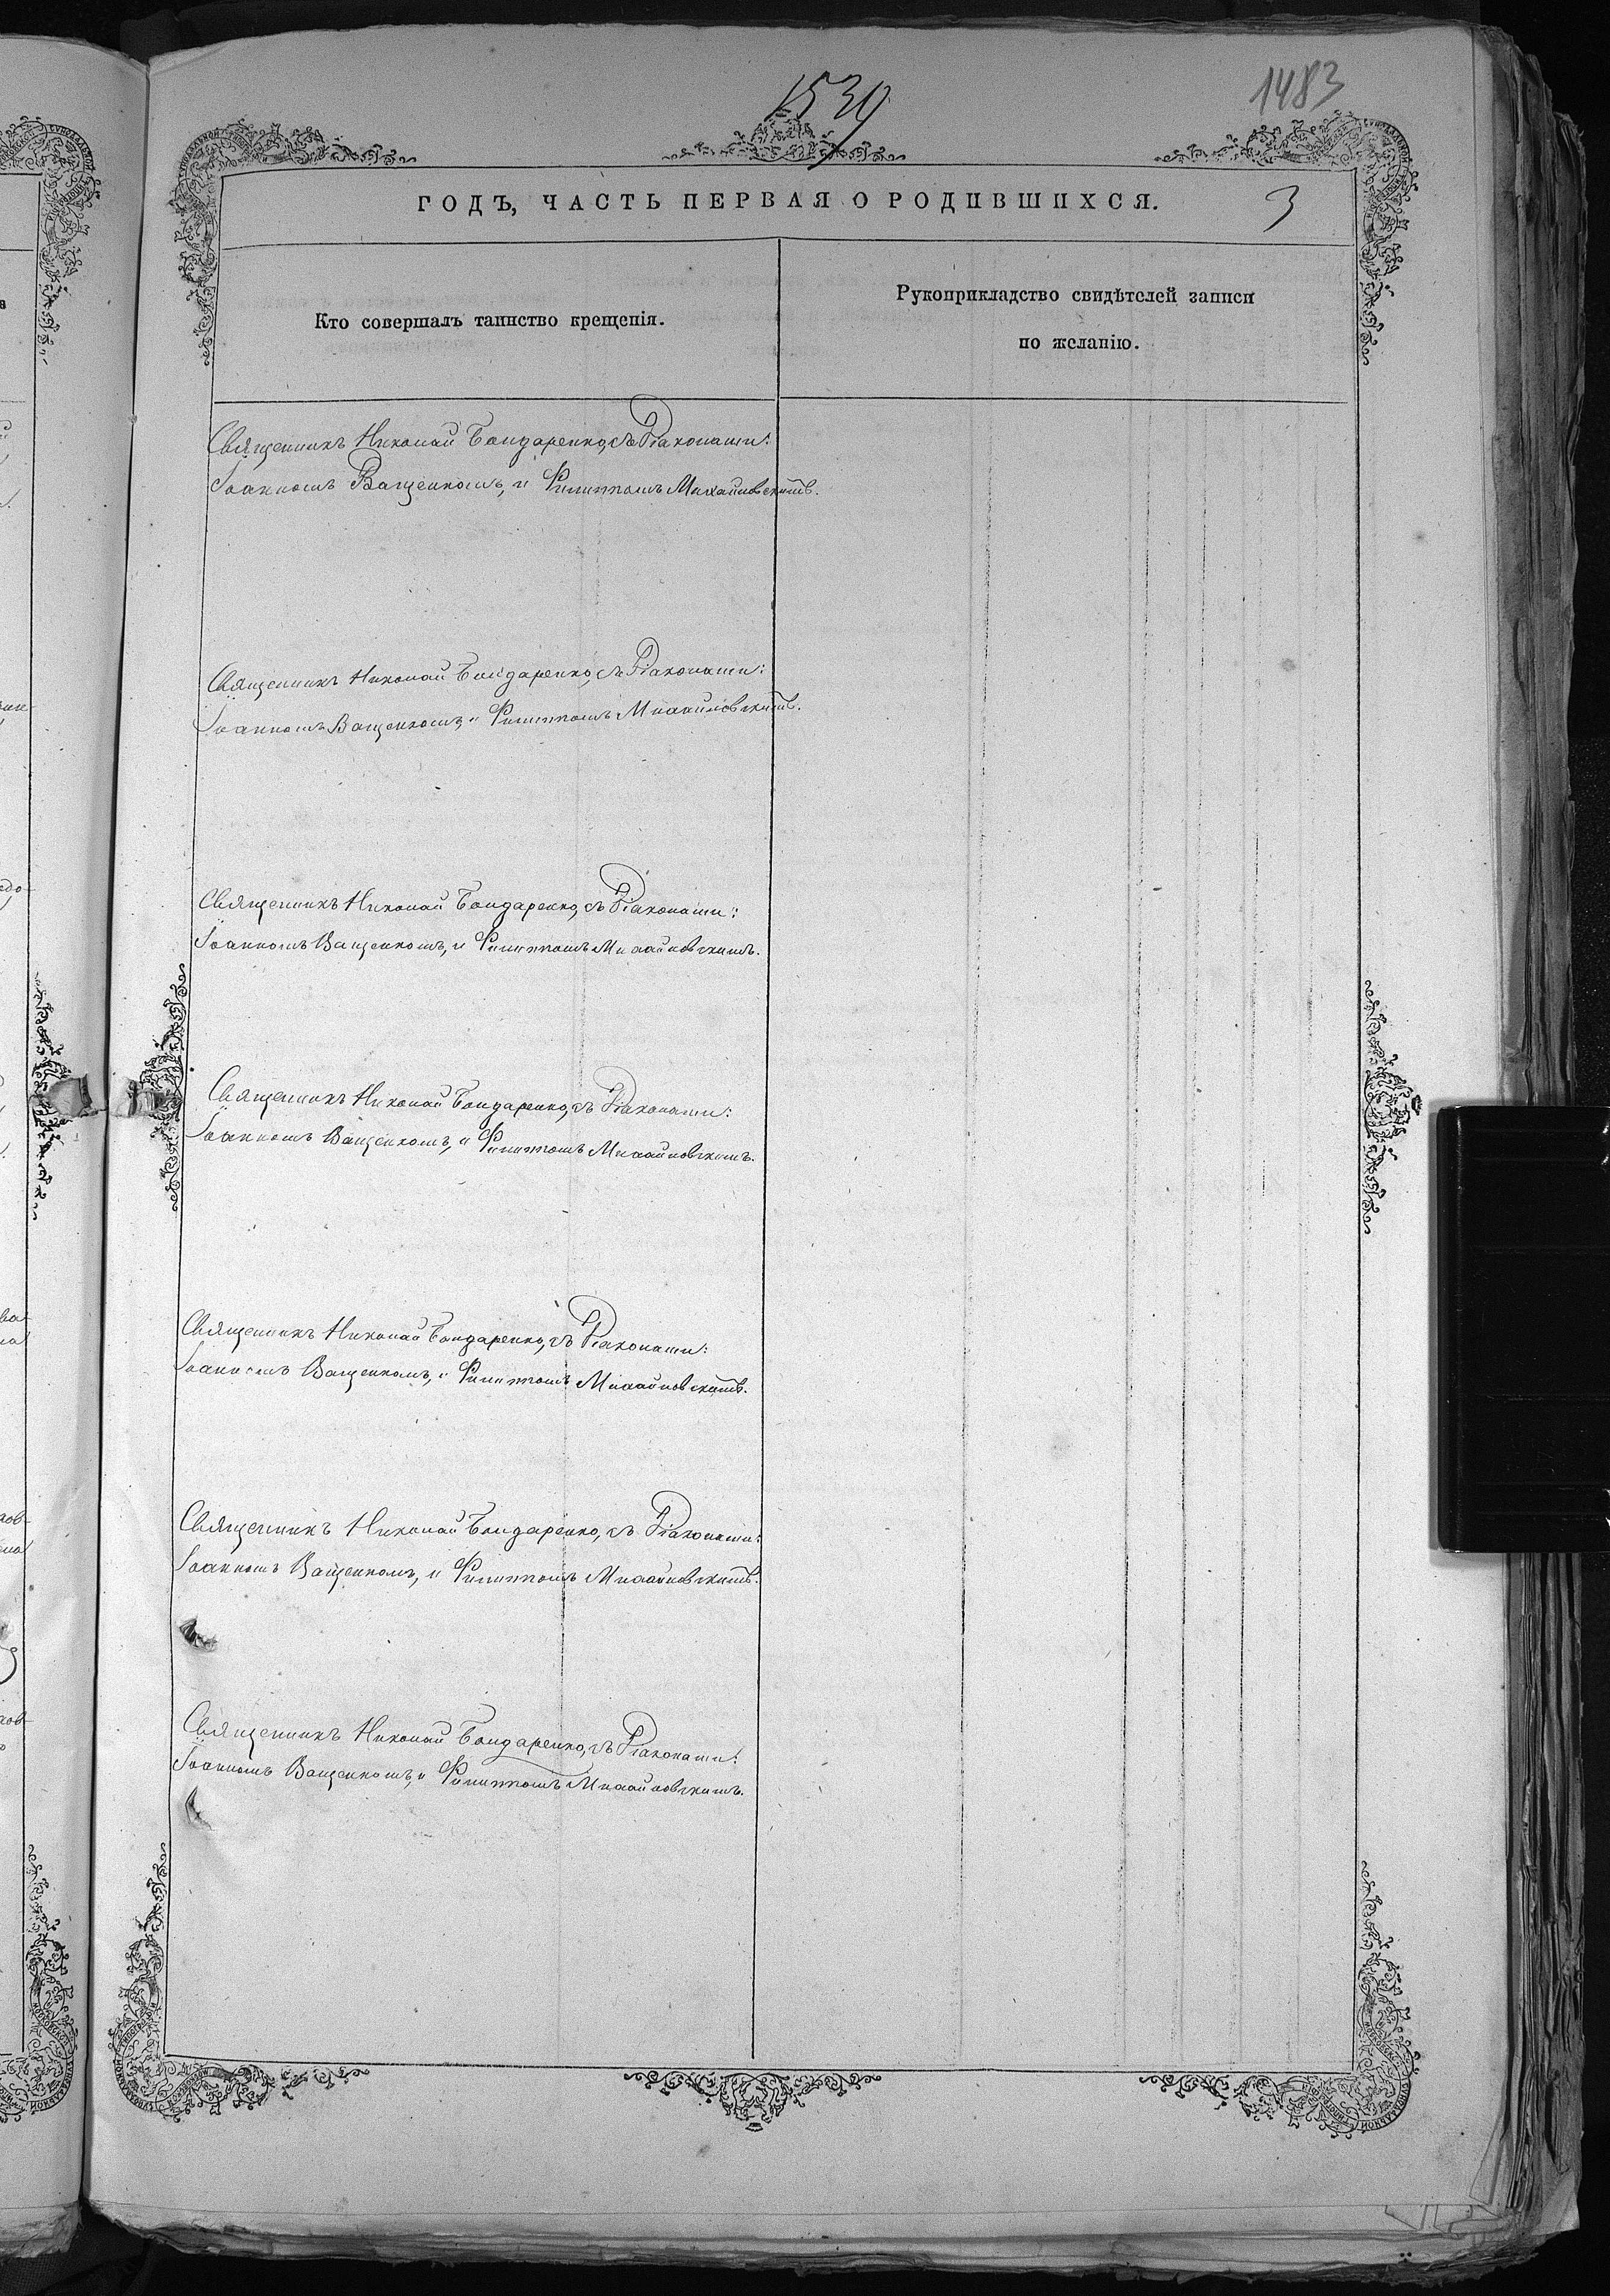 1539
1483
ГОДЪ, ЧАСТЬ ПЕРВАЯ О РОДИВШИХСЯ.
3
Кто совершалъ таинство крещенія.
Рукоприкладство свидѣтелей записи
по желанію.
Священникъ Николай Бондаренко, съ Діаконами:
Іоанномъ Ващенкомъ, и Филиппомъ Михайловскимъ.
Священникъ Николай Бондаренко, съ Діаконами:
Іоанномъ Ващенкомъ, и Филиппомъ Михайловскимъ.
Священникъ Николай Бондаренко, съ Діаконами:
Іоанномъ Ващенкомъ, и Филиппомъ Михайловскимъ.
Священникъ Николай Бондаренко, съ Діаконами:
Іоанномъ Ващенкомъ, и Филиппомъ Михайловскимъ.
Священникъ Николай Бондаренко, съ Діаконами:
Іоанномъ Ващенкомъ, и Филиппомъ Михайловскимъ.
Священникъ Николай Бондаренко, съ Діаконами:
Іоанномъ Ващенкомъ, и Филиппомъ Михайловскимъ.
Священникъ Николай Бондаренко, съ Діаконами:
Іоанномъ Ващенкомъ, и Филиппомъ Михайловскимъ.